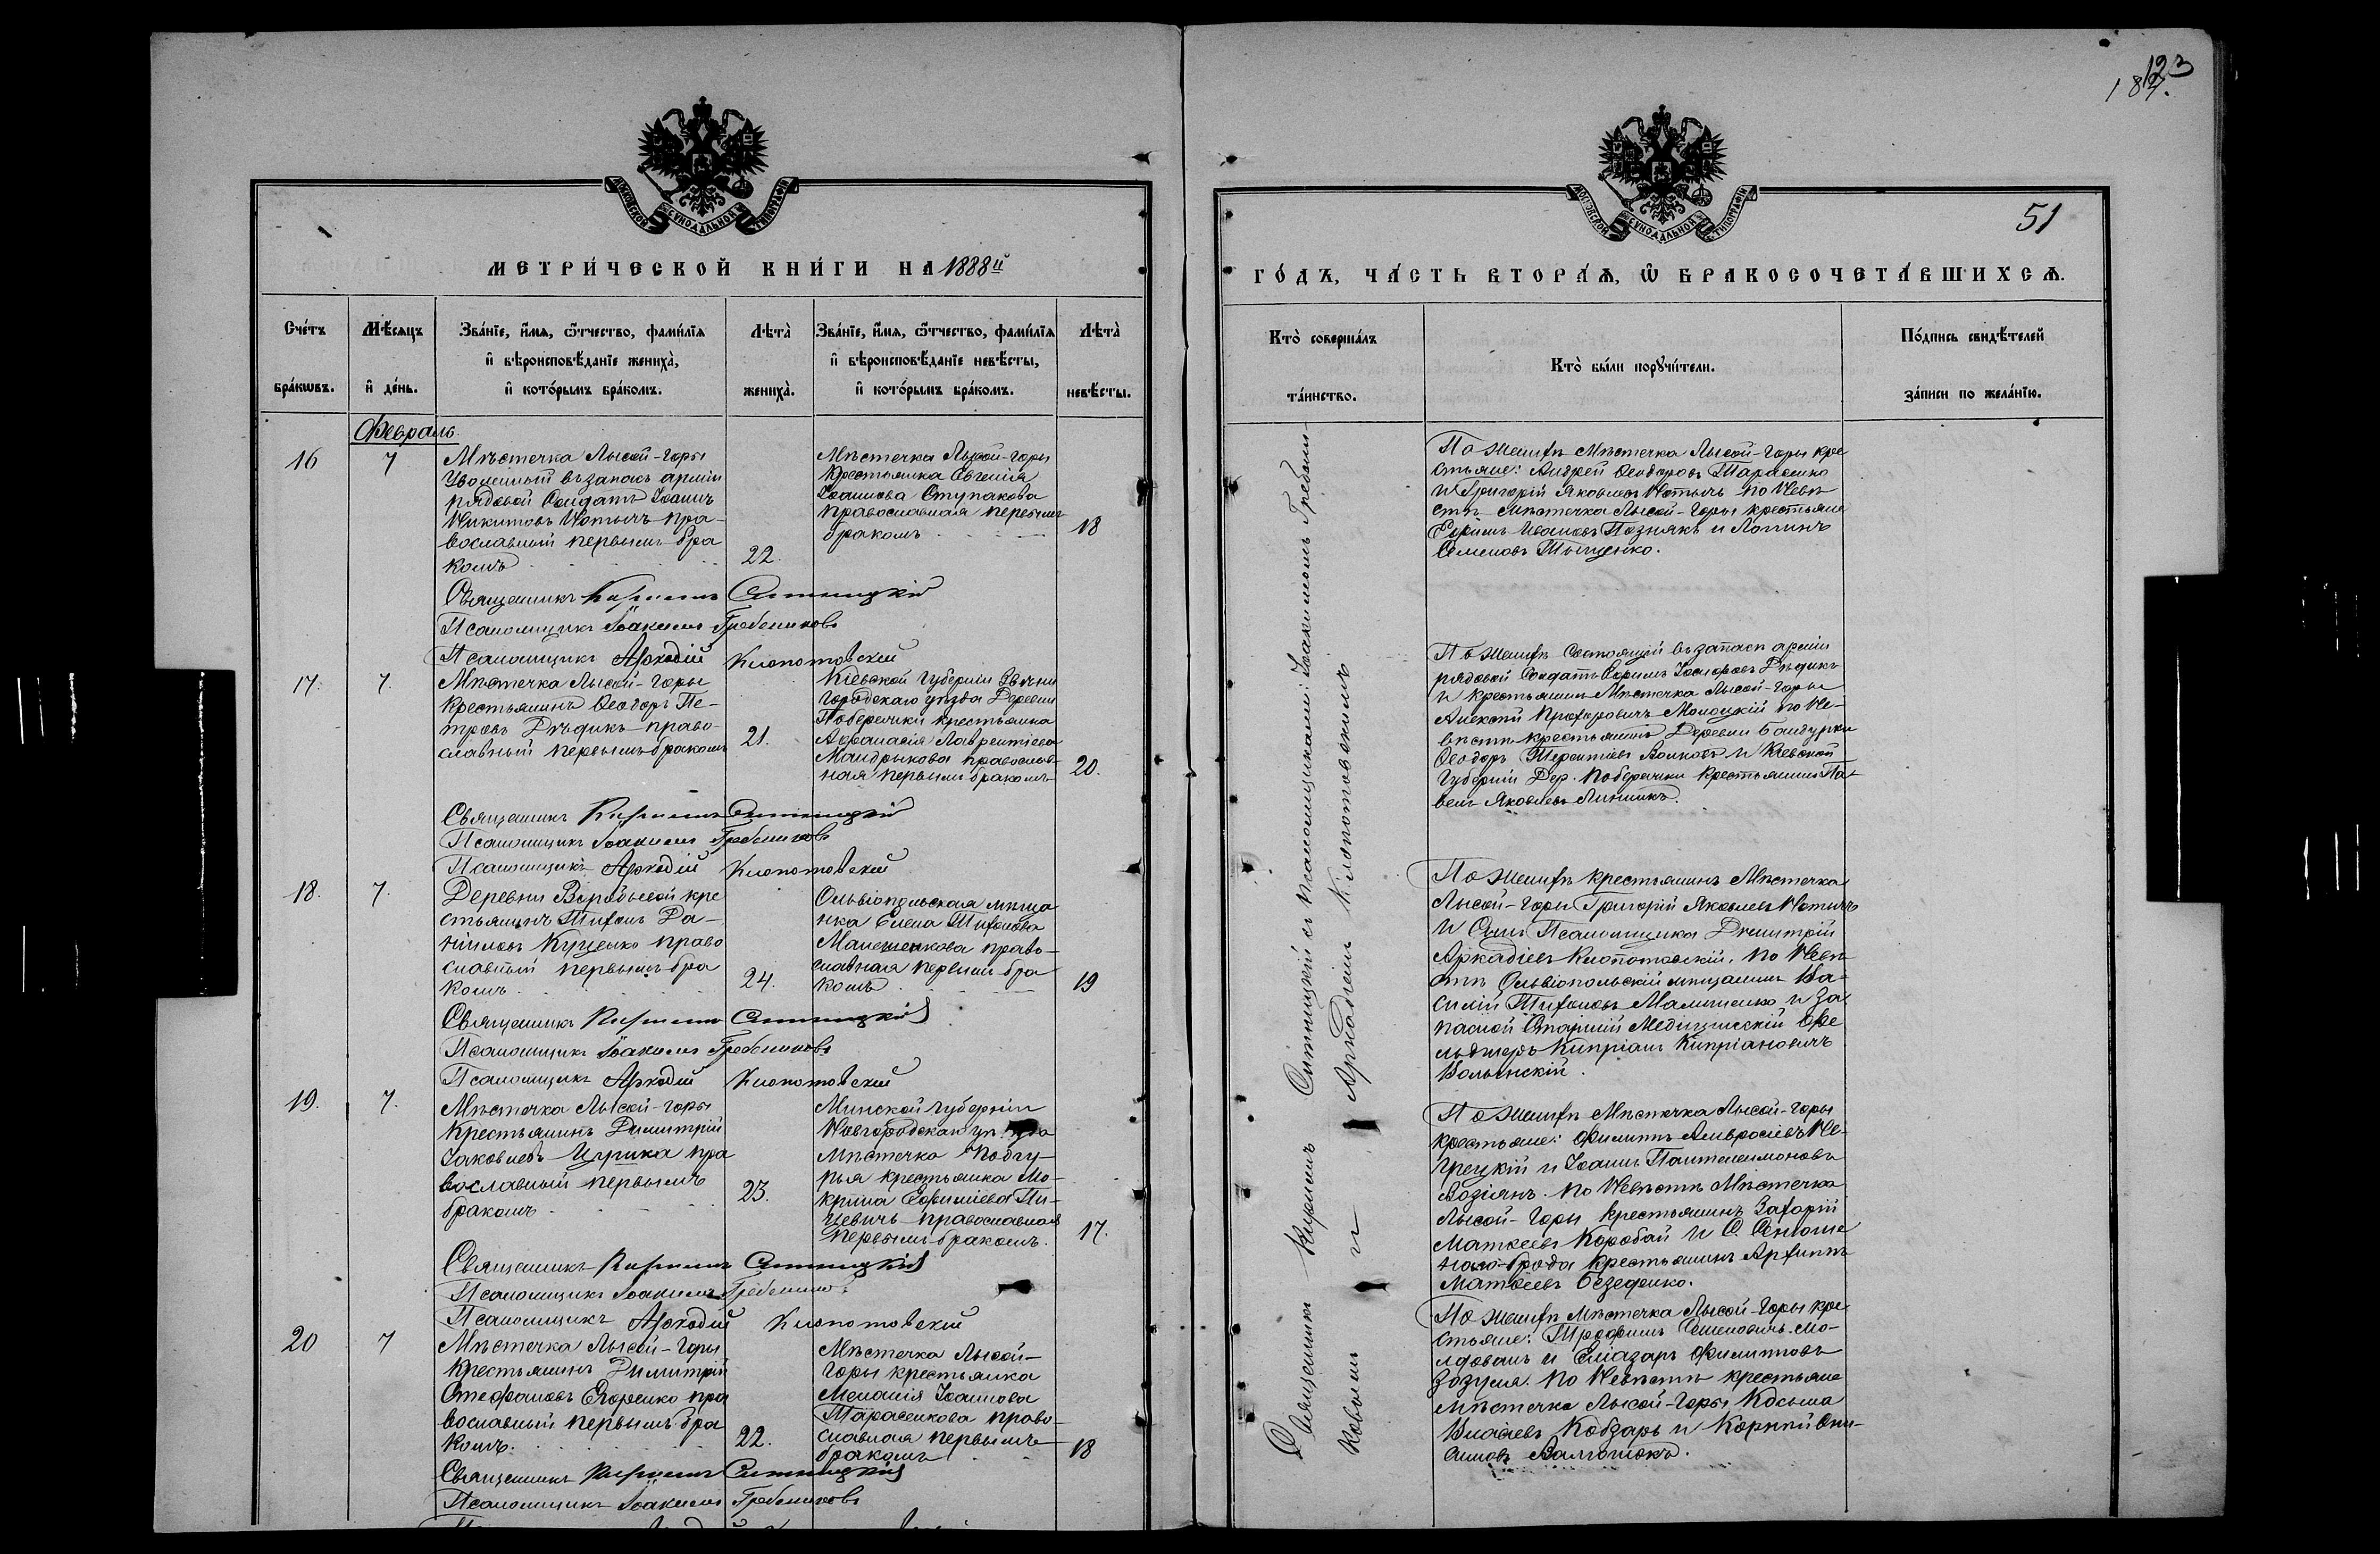 МОСКОВСКОЙ СѴНОДАЛЬНОЙ ТИПОГРАФІИ
МЕТРИ́ЧЕСКОЙ КНИ́ГИ НА 1888й
Сче́тъ бра́кѡвъ.
Мѣ́сяцъ и҆ де́нь.
Зва́нїе, и҆́мя, ѻ҆́тчество, фами́лїя
и҆ вѣроисповѣ́данїе жениха̀,
и҆ кото́рымъ бра́комъ.
Лѣта̀ жениха̀.
Зва́нїе, и҆́мя, ѻ҆́тчество, фами́лїя
и҆ вѣроисповѣ́данїе невѣ́сты,
и҆ кото́рымъ бра́комъ.
Лѣта̀ невѣ́сты.
Февраль.
16
7
Мѣстечка Лысой-Горы
Уволенный въ запасъ арміи
рядовой Солдатъ Іоаннъ
Никитовъ Нотычъ пра-
вославный первымъ бра
комъ
22.
Мѣстечка Лысой-Горы
крестьянка Евгенія
Іоаннова Ступакова
православная первымъ
бракомъ
18
Священникъ Кириллъ Ситницкій
Псаломщикъ Іоакимъ Гребениковъ
Псаломщикъ Аркадій Клопотовскій
17.
7.
Мѣстечка Лысой-Горы
Крестьянинъ Ѳеодоръ Пе-
тровъ Дѣдикъ право-
славный первымъ бракомъ
21.
Кіевской Губерніи Звени
городскаго уѣзда Деревни
Побережки крестьянка
Аѳанасія Лаврентіева
Мандрыкова православ-
ная первымъ бракомъ
20.
Священникъ Кириллъ Ситницкій
Псаломщикъ Іоакимъ Гребениковъ
Псаломщикъ Аркадій Клопотовскій
18.
7.
Деревни Воробьевой кре
стьянинъ Тихонъ Да-
ніиловъ Куценко право
славный первымъ бра
комъ
24.
Ольвіопольская мѣща
нка Елена Тихонова
Малешенкова право-
славная первымъ бра
комъ
19
Священникъ Кириллъ Ситницкій
Псаломщикъ Іоакимъ Гребениковъ
Псаломщикъ Аркадій Клопотовскій
19.
7.
Мѣстечка Лысой-Горы
Крестьянинъ Димитрій
Іаковлевъ Цурика пра
вославный первымъ
бракомъ
23.
Минской Губерніи
Новгородскаго уѣзда
Мѣстечка
крестьянка Мо-
крина Ефиміева Пи-
цевичъ православная
первымъ бракомъ.
17.
Священникъ Кириллъ Ситницкій
Псаломщикъ Іоакимъ Гребениковъ
Псаломщикъ Аркадій Клопотовскій
20
7
Мѣстечка Лысой-Горы
Крестьянинъ Димитрій
Стефановъ Ефоренко пра
вославный первымъ бра
комъ.
22.
Мѣстечка Лысой-
Горы крестьянка
Меланія Іоаннова
Тарасенкова право-
славная первымъ
бракомъ
18
Священникъ Кириллъ Ситницкій
Псаломщикъ Іоакимъ Гребениковъ
123
187.
МОСКОВСКОЙ СѴНОДАЛЬНОЙ ТИПОГРАФІИ
51
ГО́ДЪ, ЧА́СТЬ ВТОРА́Ѧ, Ѡ҆ БРАКОСОЧЕТА́ВШИХСѦ.
Кто̀ соверша́лъ та́инство.
Кто̀ бы́ли порꙋчи́тели.
По́дпись свидѣ́телей за́писи по жела́нїю.
Священникъ Кириллъ Ситницкій съ псаломщиками: Іоакимомъ Гребени-
ковымъ и Аркадіемъ Клопотовскимъ
По женихѣ Мѣстечка Лысой-Горы кре
стьяне: Андрей Ѳеодоровъ Тарасенко
и Григорій Яковлевъ Нотычъ по Невѣ
стѣ Мѣстечка Лысой-Горы крестьяне
Ефимъ Ивановъ Познякъ и Логинъ
Семеновъ Тищенко.
По женихѣ Состоящій въ запасѣ арміи
рядовой Солдатъ Ефимъ Іосифовъ Дѣдикъ
и крестьянинъ Мѣстечка Лысой-Горы
Алексѣй Прохоровичъ Молоцкій по Не-
вѣстѣ крестьянинъ Деревни Бандурки
Ѳеодоръ Терентіевъ Волковъ и Кіевской
Губерніи Дер. Побережки крестьянинъ Па-
велъ Яковлевъ Линникъ.
По женихѣ крестьянинъ Мѣстечка
Лысой-Горы Григорій Яковлевъ Нотычъ
и Сынъ Псаломщика Дмитрій
Аркадіевъ Клопотовскій, по Невѣ
стѣ Ольвіопольскій мѣщанинъ Ва-
силій Тихоновъ Малешенко и за
пасной Старшій Медицинскій Фе
льдшеръ Кипріанъ Кипріановичъ
Волынскій.
По женихѣ Мѣстечка Лысой-Горы
крестьяне: Филиппъ Амвросіевъ Не-
грецкій и Іоаннъ Пантелеимоновъ
Лозіянъ. по Невѣстѣ Мѣстечка
Лысой-Горы крестьянинъ Захарій
Матвеевъ Коробай и С. Синюхи
на-Брода крестьянинъ Архиппъ
Матвѣевъ Безефенко.
По женихѣ Мѣстечка Лысой-Горы кре
стьяне: Трофимъ Семеновичъ Мо-
лдованъ и Еліазаръ Филипповъ
Зозуля. По Невѣстѣ крестьяне
Мѣстечка Лысой-Горы Косьма
Власіевъ Кобзарь и Корній Они-
симовъ